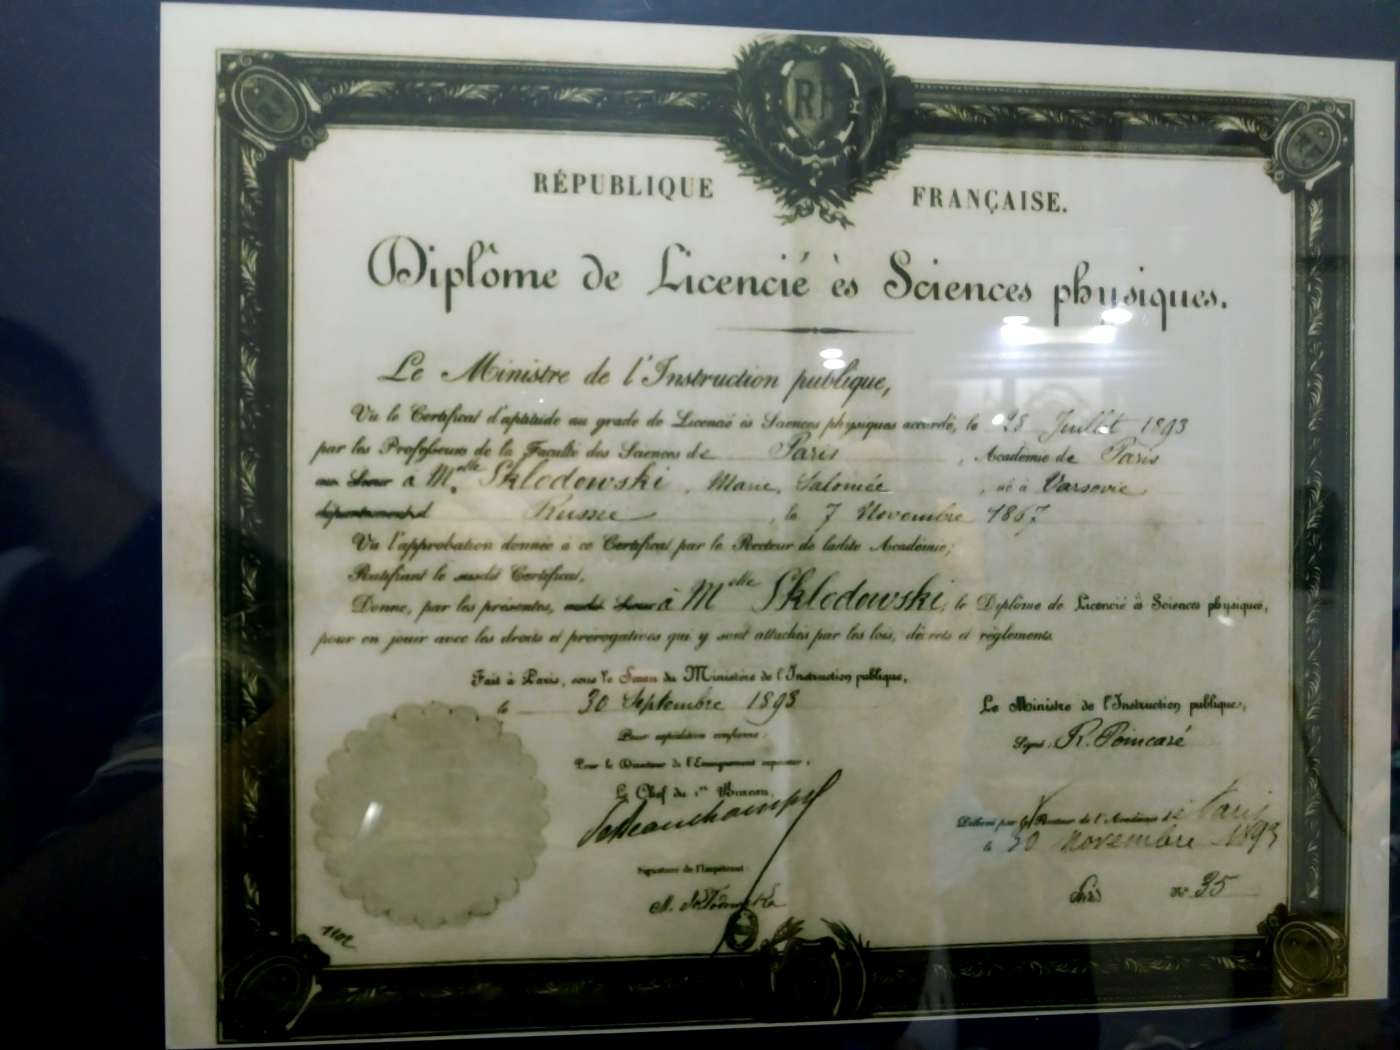 RF
RÉPUBLIQUE FRANÇAISE.
Diplôme de Licencié ès Sciences physiques.
Le Ministre de l'Instruction publique,
Vu le Certificat d'aptitude au grade de Licencié ès Sciences physiques accordé, le 28 Juillet 1893
par les Professeurs de la Faculté des Sciences de Paris, Académie de Paris
au Sieur à Melle Sklodowski, Marie, Salomée, né à Varsovie
département d Russie, le 7 Novembre 1867
Vu l'approbation donnée à ce Certificat par le Recteur de ladite Académie;
Ratifiant le susdit Certificat,
Donne, par les présentes, audit Sieur à Melle Sklodowski, le Diplôme de Licencié ès Sciences physiques,
pour en jouir avec les droits et prérogatives qui y sont attachés par les lois, décrets et règlements.
Fait à Paris, sous le Sceau du Ministère de l'Instruction publique,
le 30 Septembre 1893
Pour expédition conforme:
Pour le Directeur de l'Enseignement supérieur,
Le Chef du 1er Bureau,
Signature de l'Impétrant:
Le Ministre de l'Instruction publique,
Signé: R. Poincaré
Délivré par le Recteur de l'Académie de Paris
le 30 Novembre 1893
No 35